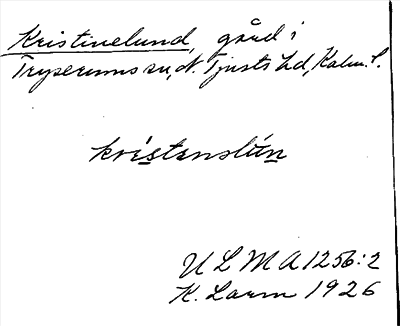 Kristinelund, gård i
Tryserums sn, N. Tjusts hd, Kalm. l.
kristenslún
ULMA 1256:2
K. Larm 1926